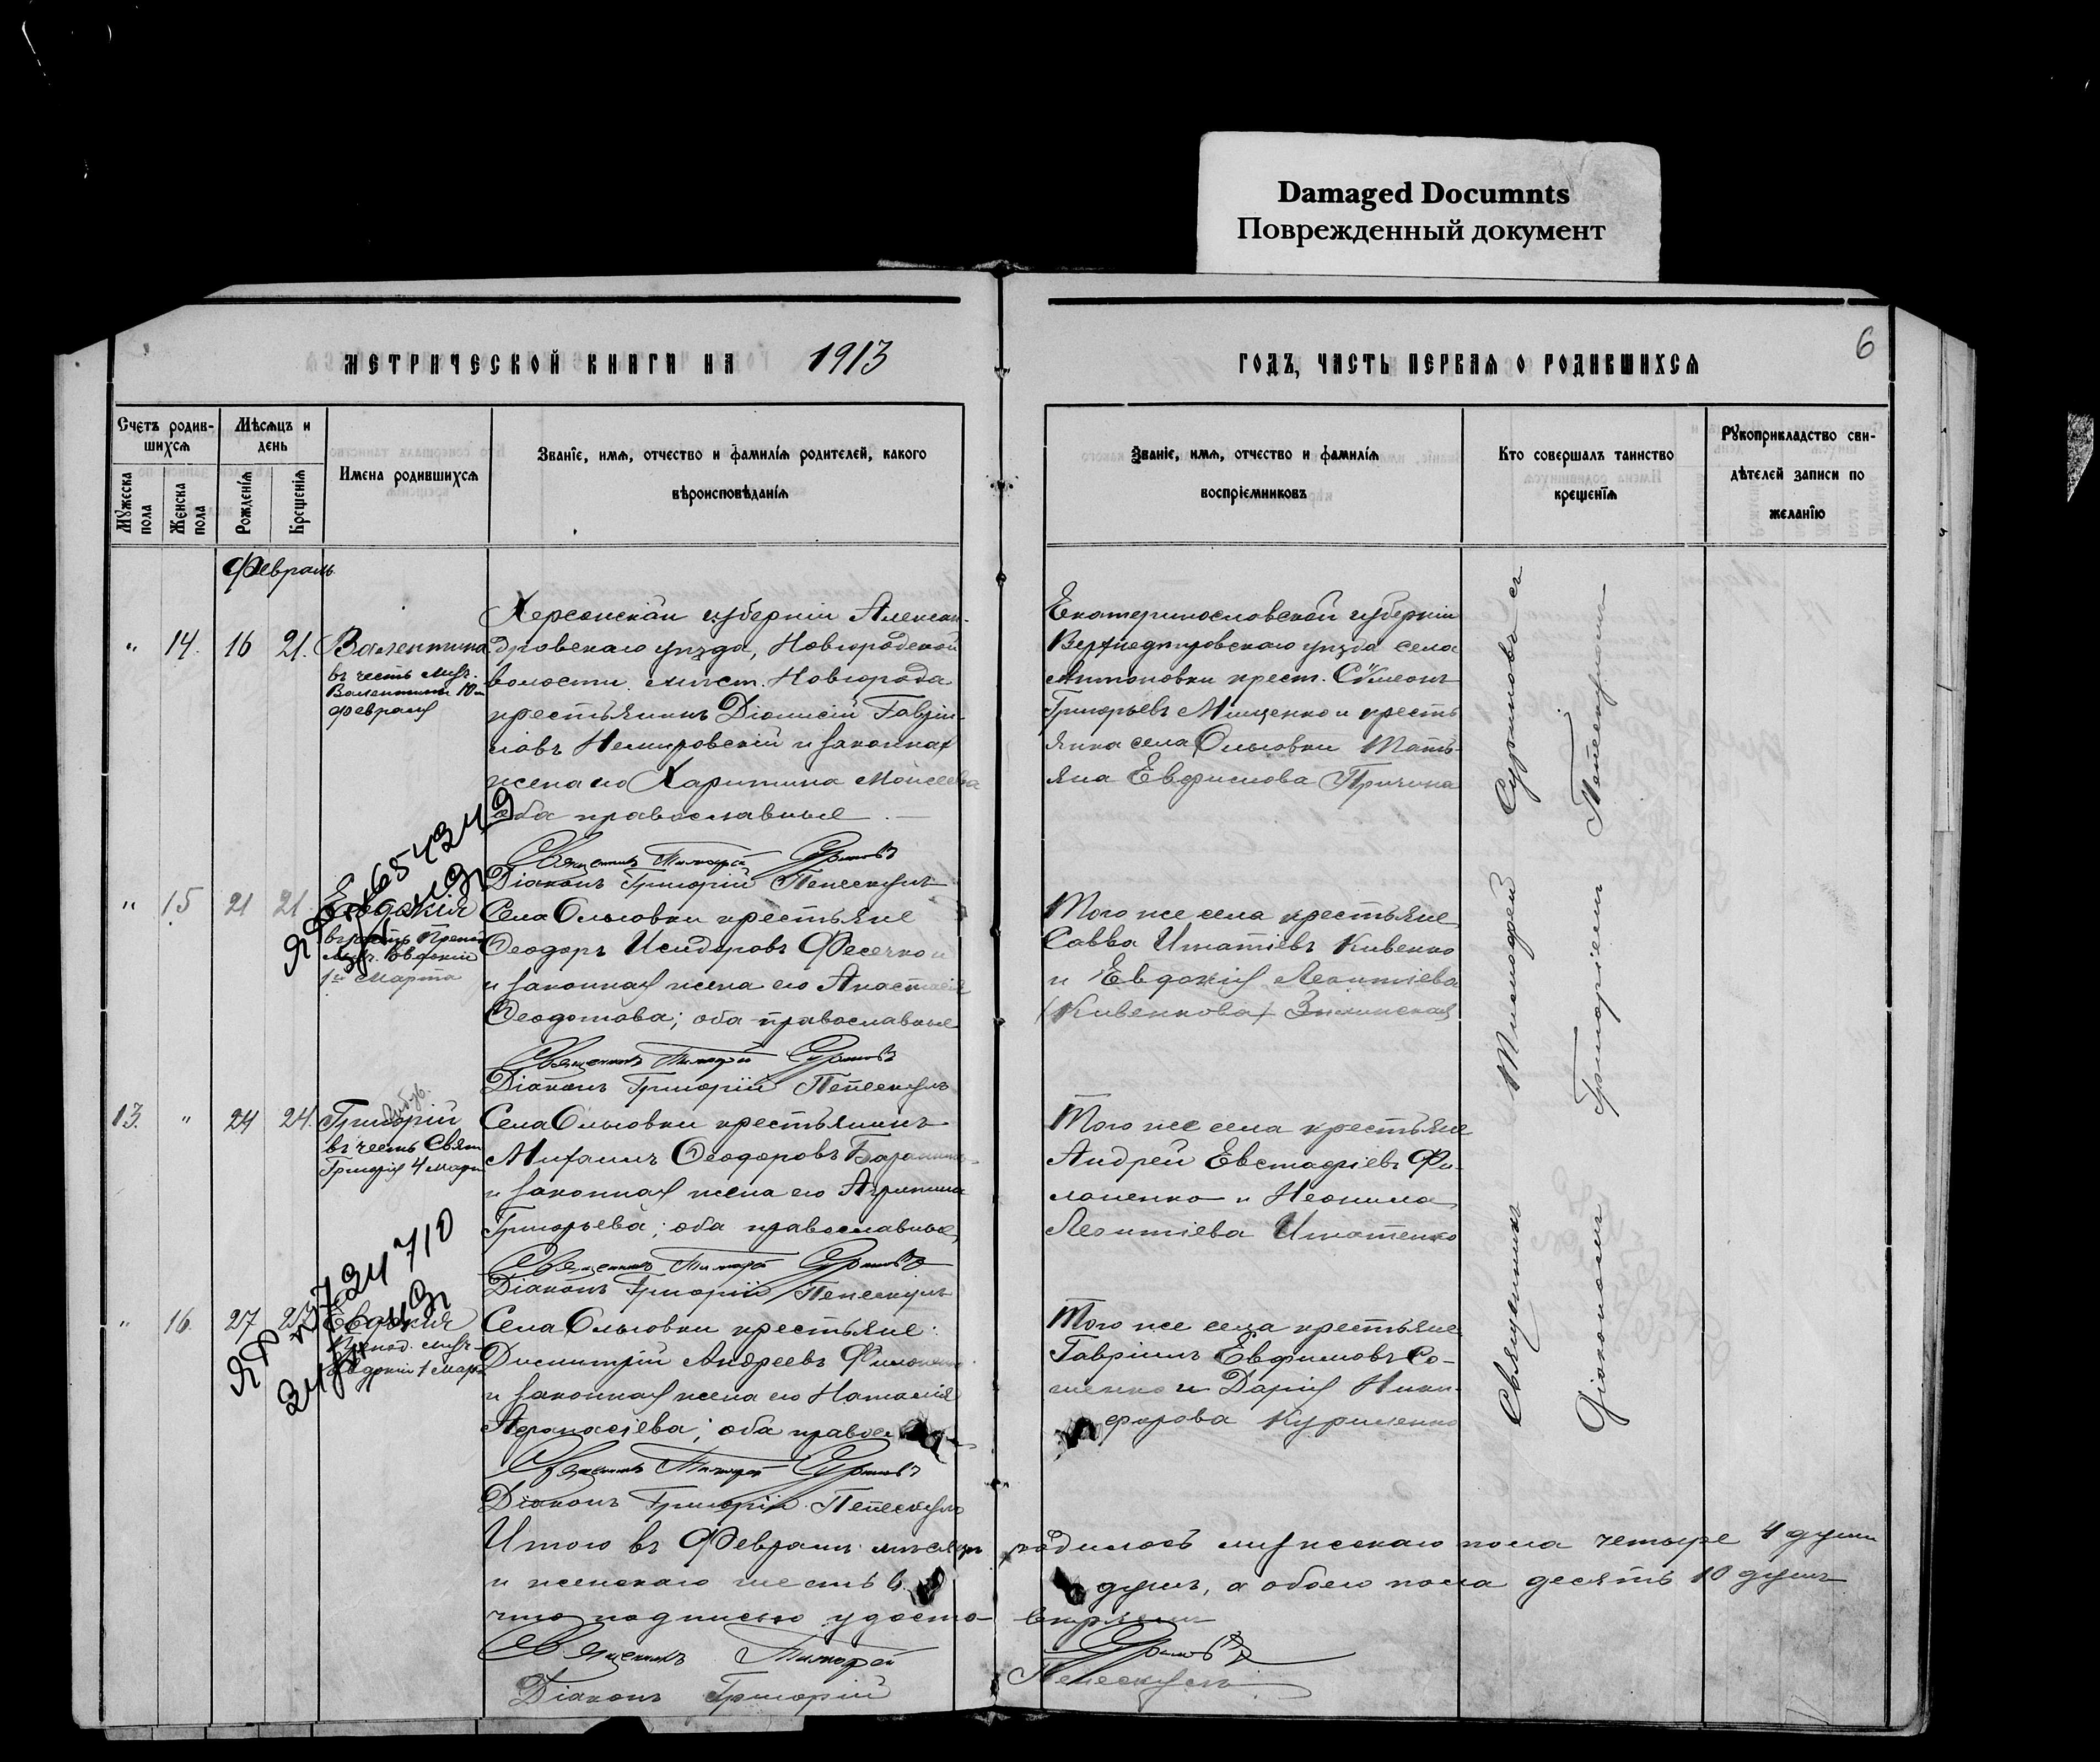 Damaged Documnts
Поврежденный документ
6
МЕТРИЧЕСКОЙ КНИГИ НА 1913 ГОДЪ, ЧАСТЬ ПЕРВАЯ О РОДИВШИХСЯ
Счетъ родив-
шихся
Мужеска пола
Женска пола
Мѣсяцъ и
день
Рожденія
Крещенія
Имена родившихся
Званіе, имя, отчество и фамилія родителей, какого
вѣроисповѣданія
Званіе, имя, отчество и фамилія
воспріемниковъ
Кто совершалъ таинство
крещенія
Рукоприкладство сви-
дѣтелей записи по
желанію
Февраль
" 14. 16 21.
Валентина
въ честь муч.
Валентины 10го
февраля
Херсонской губерніи Алексан-
дровскаго уѣзда, Новгородской
волости мѣст. Новгорода
крестьянинъ Діонисій Гаврiи-
ловъ Немировскій и законная
жена его Харитина Моисеева
оба православные.
Екатеринославской губерніи
Верхнеднѣпровскаго уѣзда села
Антоновки крест. Сѵмеонъ
Григорьевъ Мищенко и кресть
янка села Ольговки Тать-
яна Евфимова Причина
Священникъ Тимофей Суриковъ
Діаконъ Григорій Пепескулъ
" 15 21 21
Евдокія
въ честь Препод
муч. Евдокіи
1го Марта
Села Ольговки крестьяне
Ѳеодоръ Исидоровъ Фесечко и
и законная жена его Анастасія
Ѳеодотова; оба православные
Того же села крестьяне
Савва Игнатіевъ Кивенко
и Евдокія Леонтіева
(Кивенкова)
Священникъ Тимофей Суриковъ
Діаконъ Григорій Пепескулъ
13. " 24 24.
Григорій
въ честь Свят
Григорія 4 Марта
Села Ольговки крестьянинъ
Михаилъ Ѳеодоровъ
и законная жена его Агрипина
Григорьева; оба православные,
Того же села крестьяне
Андрей Евстафіевъ Фи-
лоненко и Неонила
Леонтіева Игнатенко
Священникъ Тимофей Суриковъ
Діаконъ Григорій Пепескулъ
" 16. 27 27
Евдокія
Препод. муч-
Евдокіи 1 Март
Села Ольговки крестьяне:
Димитрій Андреевъ
и законная жена его Наталія
Афанасіева; оба правос
Того же села крестьяне
Гавріилъ Евфимовъ Со-
и Дарія Ники-
форова Куриленко
Священникъ Тимофей Суриковъ
Діаконъ Григорій Пепескулъ
Священникъ Тимофей Суриковъ съ
Діакономъ Григоріемъ Пепескуломъ
Итого въ Февралѣ мѣсяцѣ родилось мужескаго пола четыре 4 души
и женскаго шесть 6 душъ, а обоего пола десять 10 душъ
что подписью удосто-вѣряемъ
Священникъ Тимофей Суриковъ
Діаконъ Григорій Пепескулъ